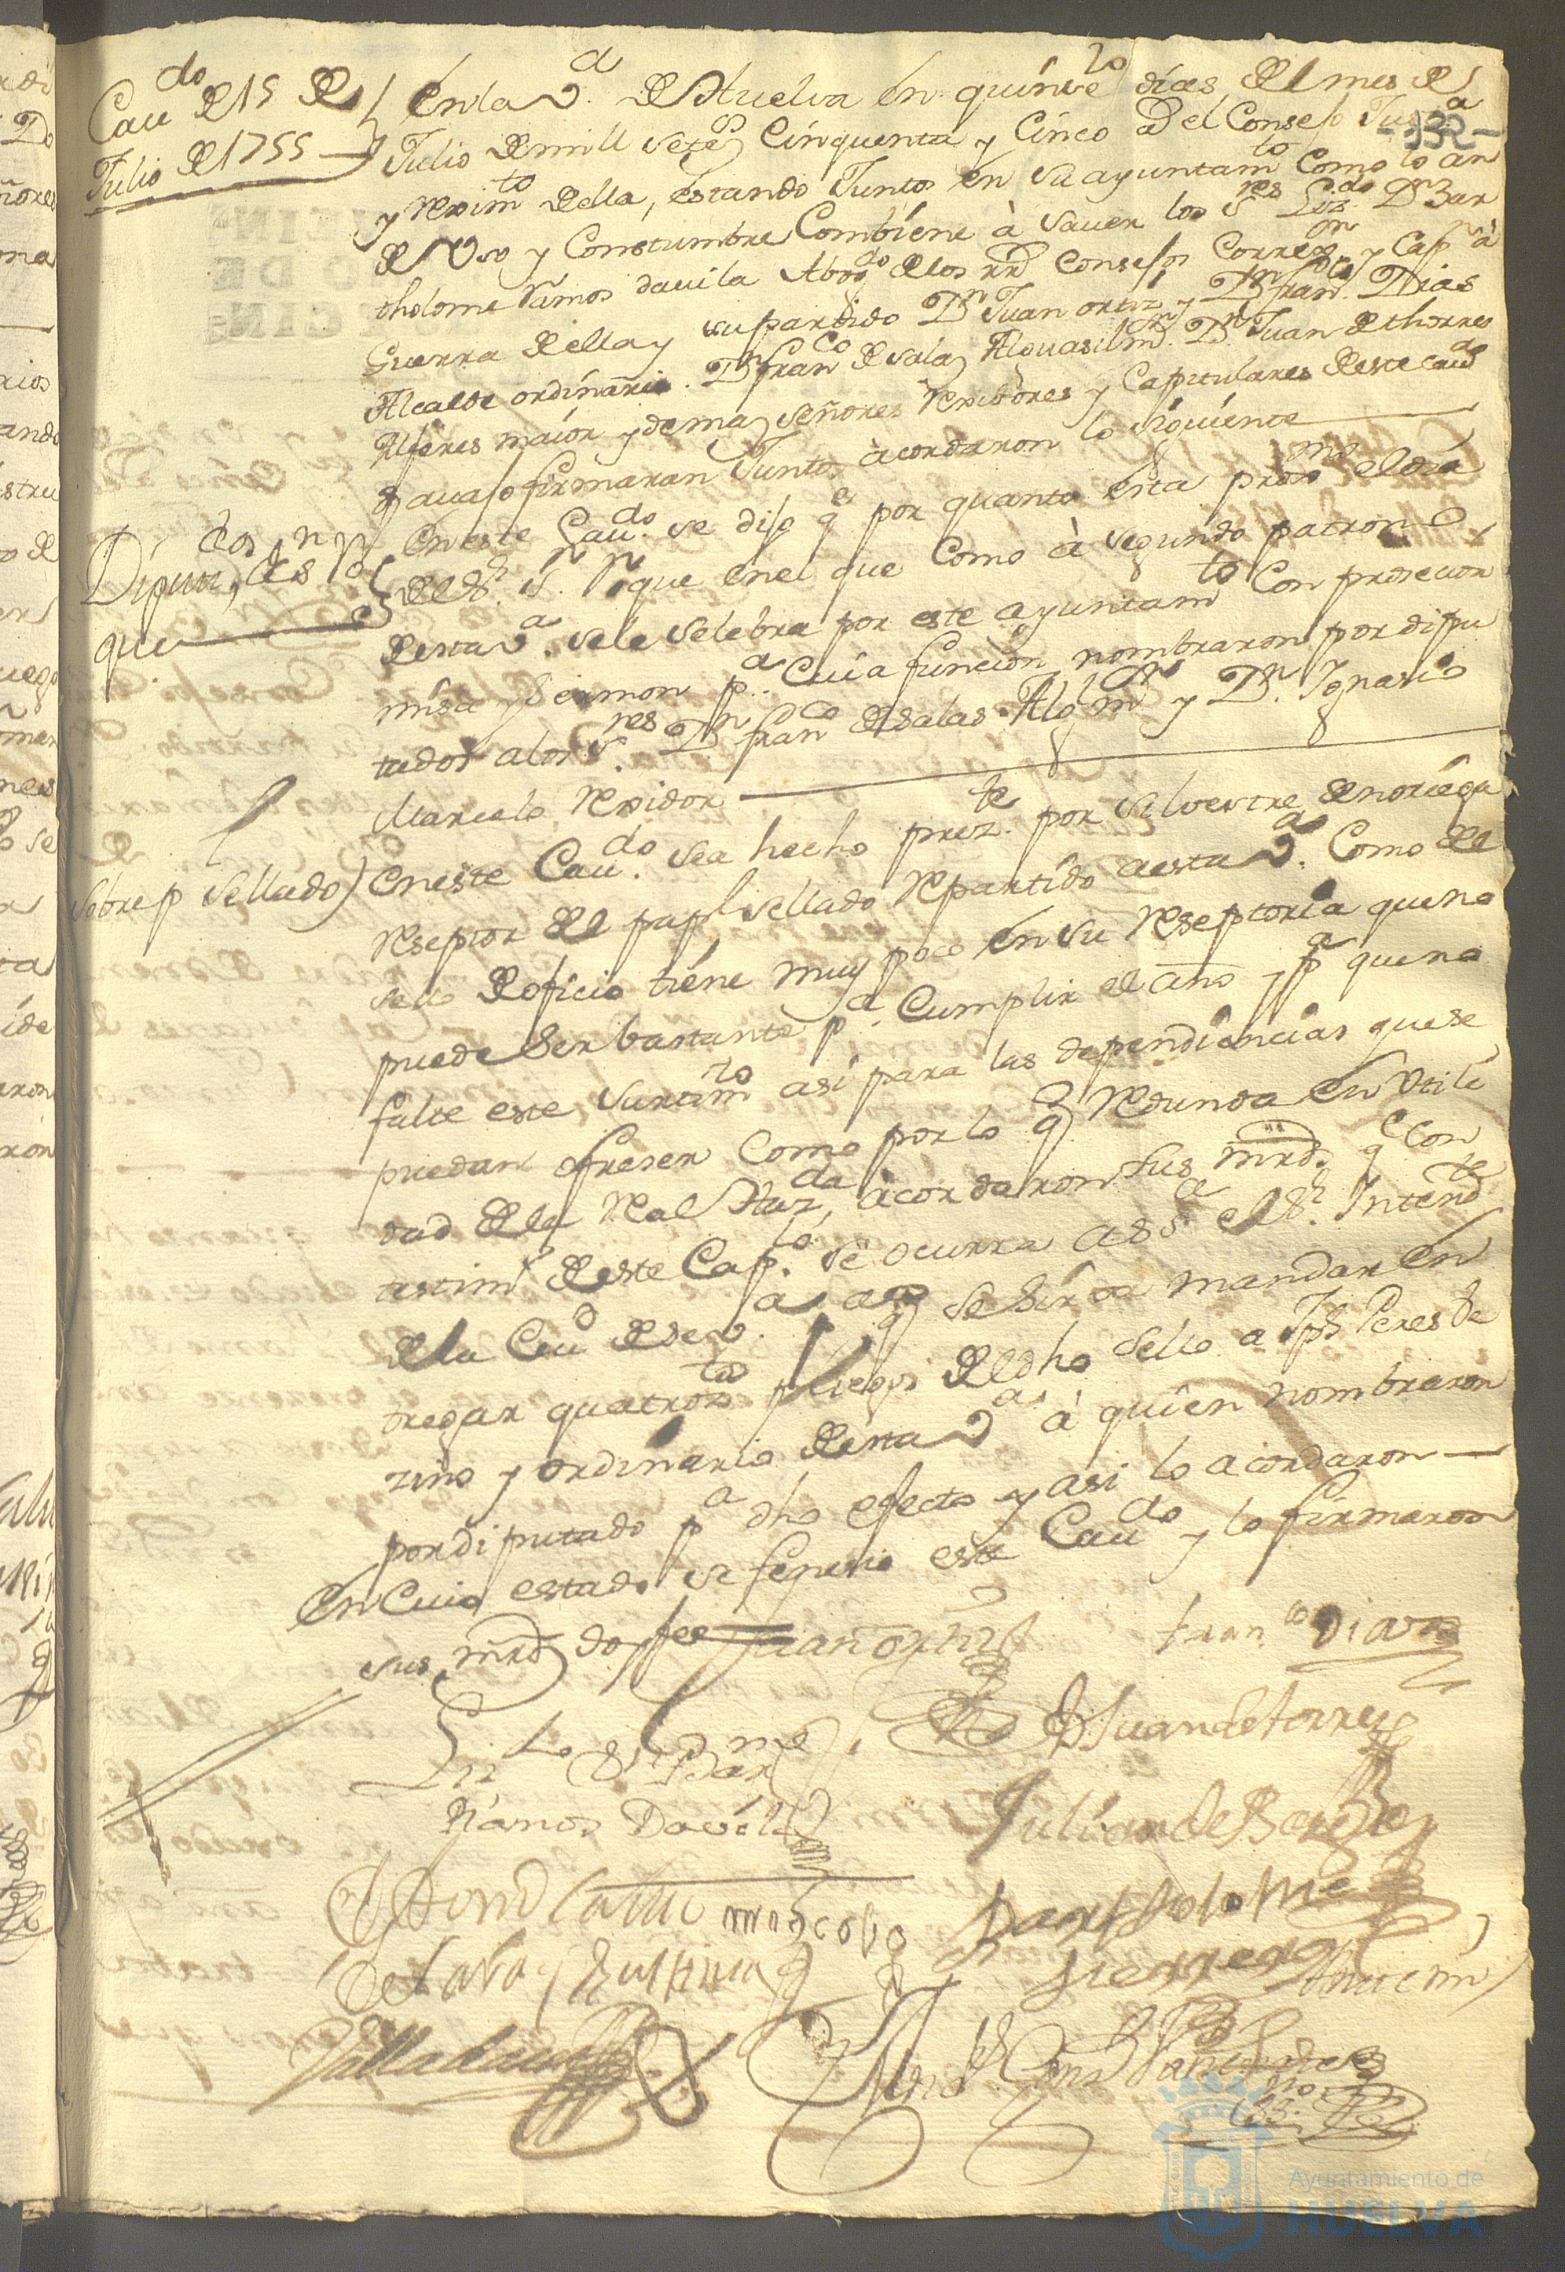 Cau.do de 15 de
Julio de 1755
-132-
En la V.a de Huelva en quinse dias del mes de
Julio de mill setez.os Cinquenta y Cinco el Consejo Just.a
y Reximto della, estando Juntos en su ayuntam.to Como lo an
de Uso y Constumbre Combiene à saver los S.res Liz.do D.n Bar
tholome Ramos davila Abog.do de los rr.s Consejos Correg.or y Cap.n à
Guerra della y su partido D.n Juan ortiz y D.n fran.co Dias
Alcalde ordinario. D.n fran.co de Salas Alguasil m.or D.n Juan de thorres
Alferes maior y demas señores Rexidores y Capitulares deste Cau.do
q avajo firmaran Juntos acordaron lo siguiente
Diputa.dos, de S.n Roque
En este Cau.do se dijo q.e por quanto esta prox.mo el dia
del S.r S.n Roque en el que Como à segundo patron
desta V.a se le selebra por este ayuntam.to Con prosecion
misa y sermon p.a Cuia funcion nombraron por dipu
tados a los S.res D.n fran.co de Salas Alg.l m.or y D.n Ignasio
Marcelo Rexidor
Sobre p.l Sellado
En este Cau.do sea hecho prez.te por Silvestre de noriega
Reseptor del papl sellado Repartido a esta V.a Como del
sello de oficio tiene muy poco en su Reseptoria que no
puede ser bastante p.a Cumplir el año y p.a que no
falte este surtim.to asi para las dependiencias que se
puedan ofreser Como por lo q Redunda en Utili
dad de la Real Haz.da, acordaron sus mrds. q.e con
testim.o deste Cap.lo se ocurra a S S.a el S.r Intend.te
de la Ciu.d de Sev.a a q se sirva mandar en
tregar quatroz.tos pliegos del dho sello a Jph Peres de
zino y ordinario desta V.a à quien nombraron
por diputado p.a dho efecto y asi lo acordaron
En Cuio estado se fenesio este Cau.do y lo firmaron
sus mrds doy fee
Juan ortiz
fran.co Diaz
Liz.do D.n Bar.me
Ramos Davila
D Juan de torres
Julian de
moscoso
Bartholome